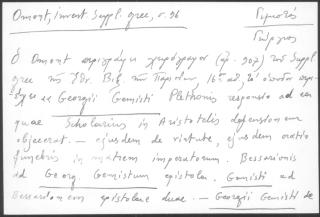 Omont, invent. Suppl. grec, σ. 96
Γεμιστός
Γεώργιος
Ὁ Omont περιγράφει χειρόγραφον (ἀρ. 907) τοῦ Suppl.
grec τῆς Ἐθν. Βιβ. τῶν Παρισίων, 16ου αἰ, τὸ ὁποῖον περι-
έχει Georgii Gemisti Plethonis responsio ad ea
quae Scholarius in Aristotelis defensionem
objecerat. – ejusdem de virtute, ejusdem oratio
funebris in matrem imperatorum. Bessarionis
ad Georg. Gemistum epistola. Gemisti ad
Bessarionem epistolae duae. – Georgii Gemisti de